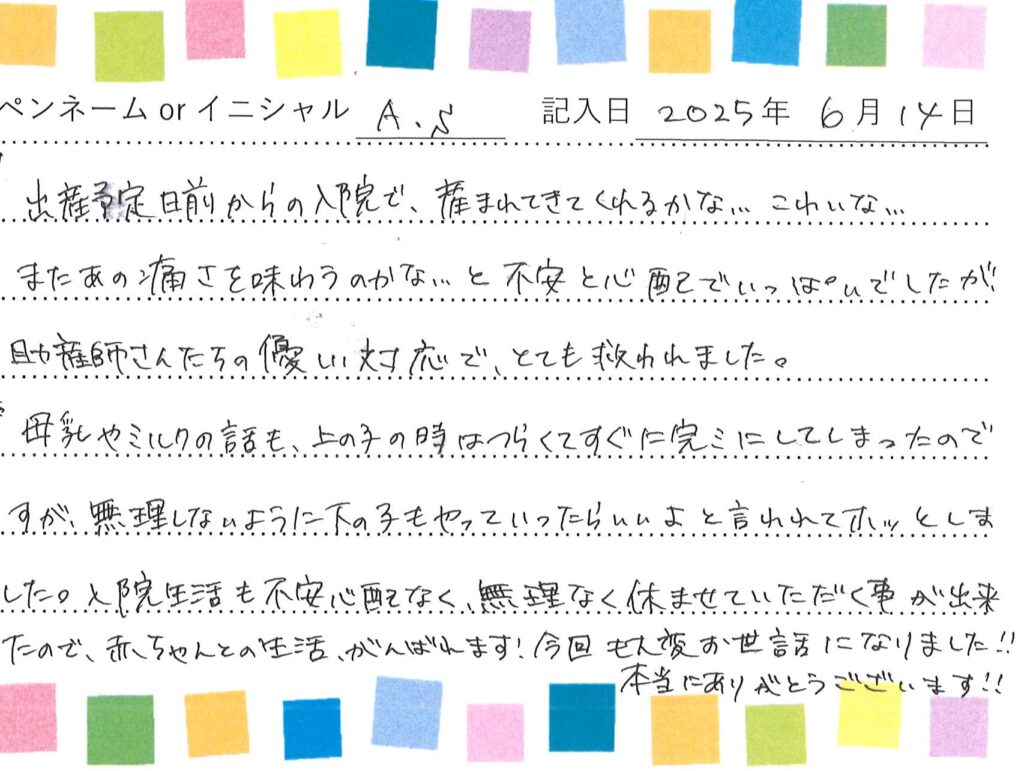 ペンネーム or イニシャル A.S 記入日 2025年 6月14日
出産予定日前からの入院で、産まれてきてくれるかな… こわいな…
またあの痛さを味わうのかな…と不安と心配でいっぱいでしたが、
助産師さんたちの優しい対応で、とても救われました。
母乳やミルクの話も、上の子の時はつらくてすぐに完ミにしてしまったので
すが、無理しないように下の子もやっていったらいいよと言われてホッとしま
した。入院生活も不安心配なく、無理なく休ませていただく事が出来
たので、赤ちゃんとの生活、がんばれます!今回も大変お世話になりました!!
本当にありがとうございます!!